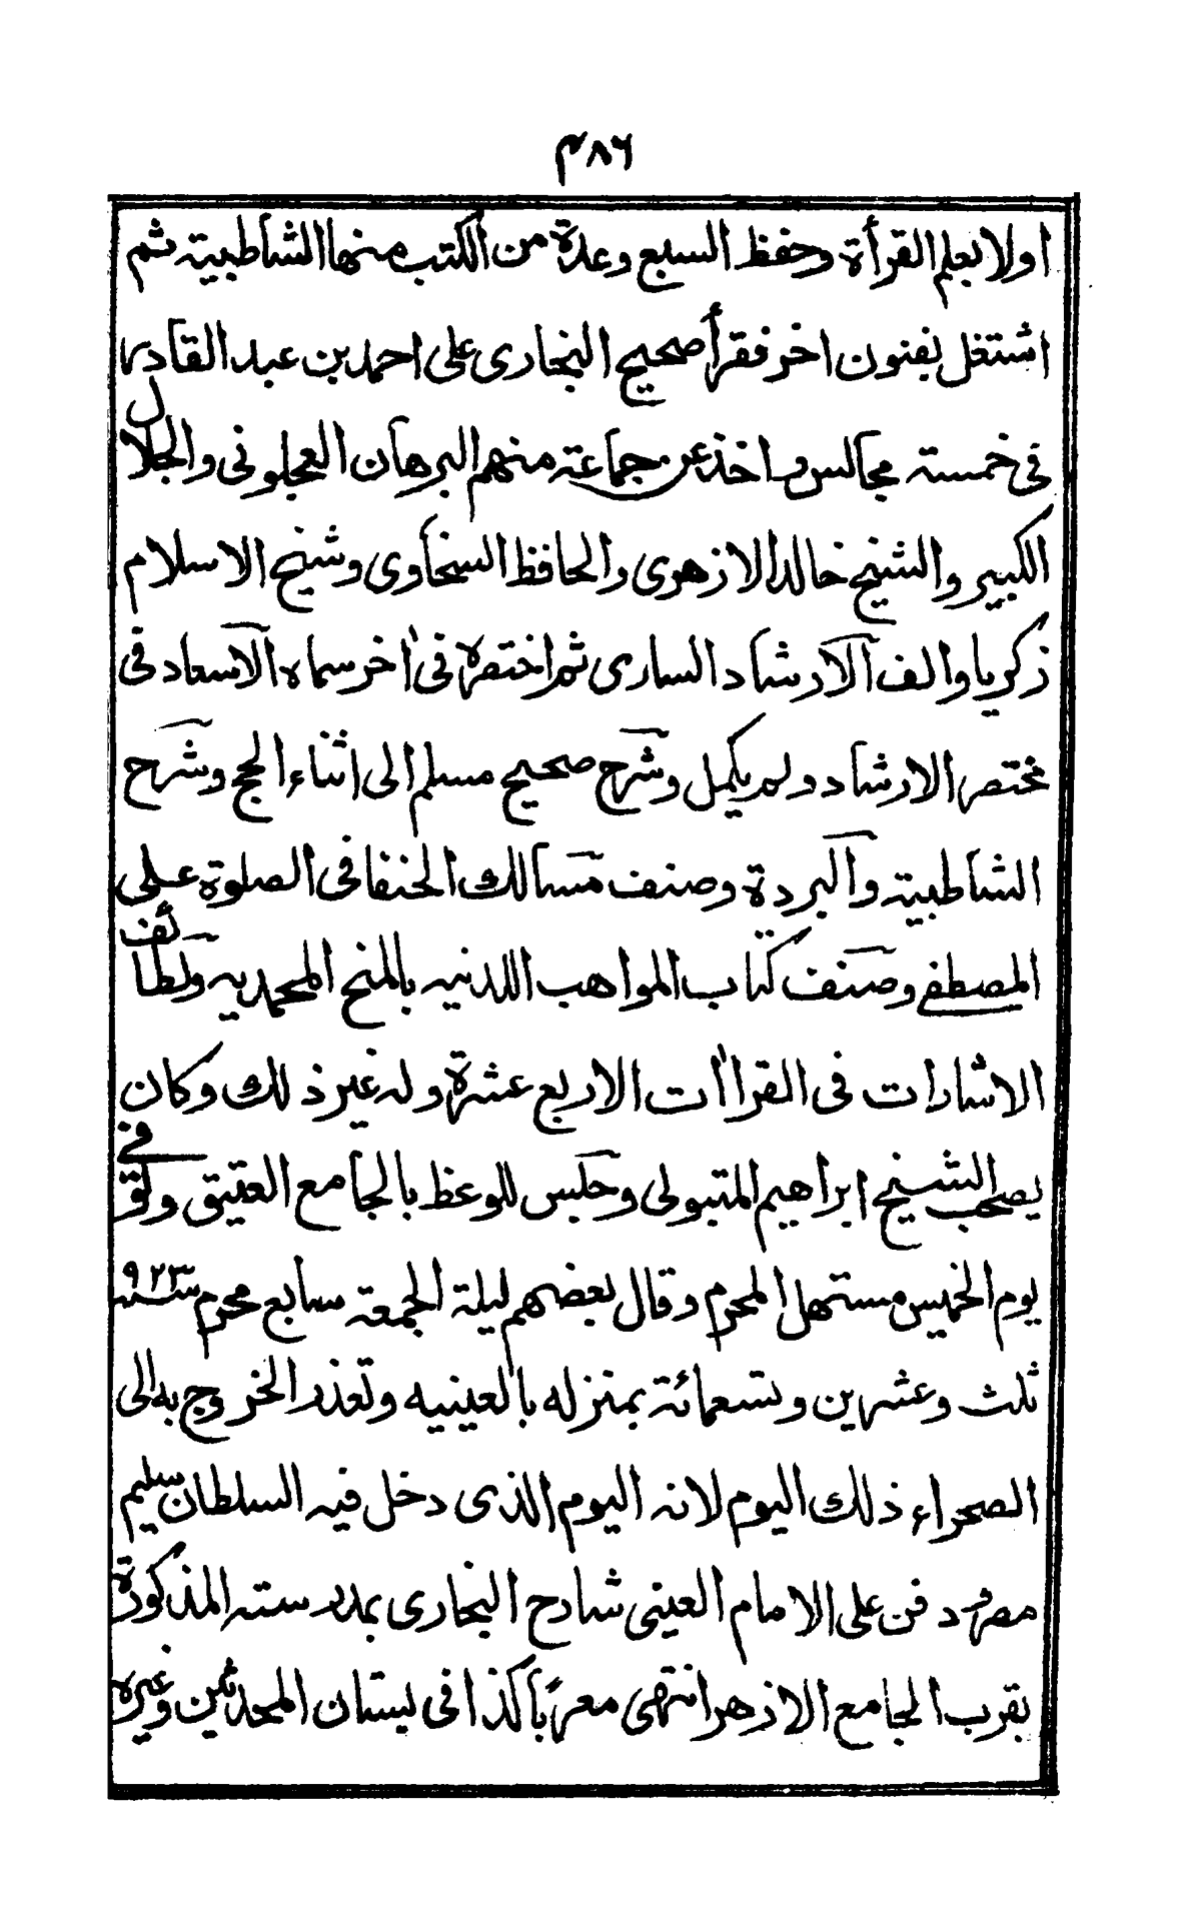 ۴۸۶
اولا بعلم القرأة وحفظ السبع وعدة من الكتب منها الشاطبية ثم
اشتغل بفنون اخر فقرأ صحيح البخارى على احمد بن عبد القادر
فى خمسته مجالس واخذ عن جماعته منهم البرهان العجلونى والجلال
الكبير والشيخ خالد الازهرى والحافظ السخاوى وشيخ الاسلام
زكريا والف الارشاد السارى ثم اختصره فى اخر سماه الاسعاد فى
مختصر الارشاد ولم يكمل وشرح صحيح مسلم الى اثناء الحج وشرح
الشاطبية والبردة وصنف مسالك الحنفا فى الصلوة على
المصطفى وصنف كتاب المواهب اللدنيه بالمنح المحمديه ولطائف
الاشارات فى القراات الاربع عشرة وله غير ذلك وكان
يصحب الشيخ ابراهيم المتبولى وجلس للوعظ بالجامع العتيق وتوفى
يوم الخميس مستهل المحرم وقال بعضهم ليلة الجمعة سابع محرم سنة ٩٢٣
ثلث وعشرين وتسعمائة بمنزله بالعينيه وتعذر الخروج به الى
الصحراء ذلك اليوم لانه اليوم الذى دخل فيه السلطان سليم
مصر ودفن على الامام العينى شارح البخارى بمدرسته المذكورة
بقرب الجامع الازهر انتهى معربا كذا فى بستان المحدثين وغيره